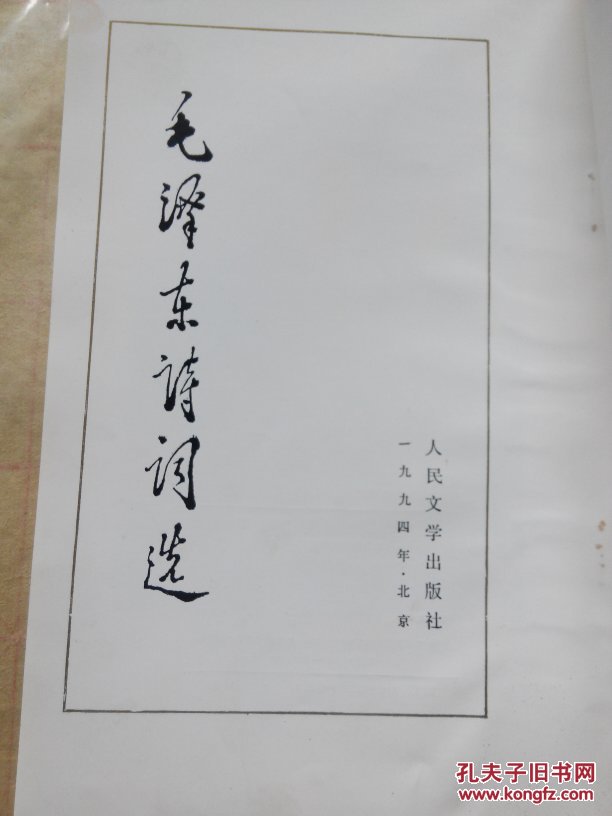 毛泽东诗词选
人民文学出版社
一九九四年·北京
孔夫子旧书网
www.kongfz.com